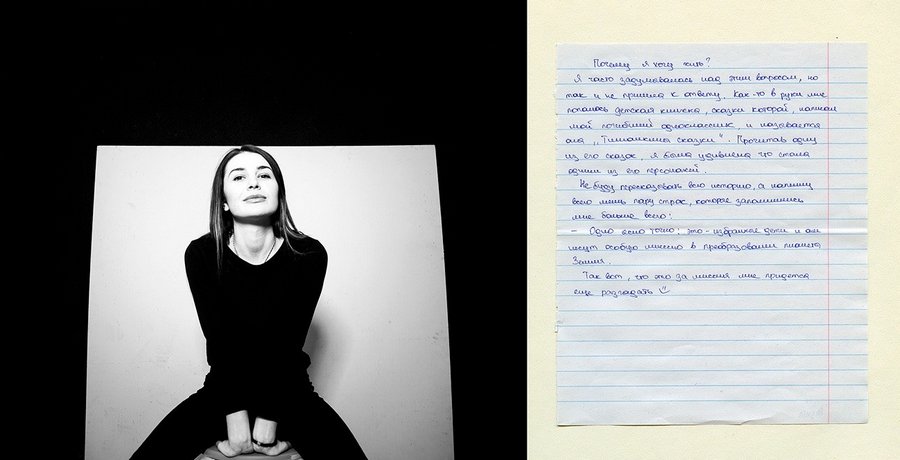 Почему я хочу жить?
Я часто задумывалась над этим вопросом, но
так и не пришла к ответу. Как-то в руки мне
попалась детская книжка, сказки которой, написал
мой погибший одноклассник, и называется
она „Тимошкины сказки“. Прочитав одну
из его сказок, я была удивлена что стала
одним из его персонажей.
Не буду пересказывать всю историю, а напишу
всего лишь пару строк, которые запомнились
мне больше всего:
- Одно ясно точно: это - избранные дети и они
несут особую миссию в преобразовании планеты
Земля.
Так вот, что это за миссия мне придется
еще разгадать